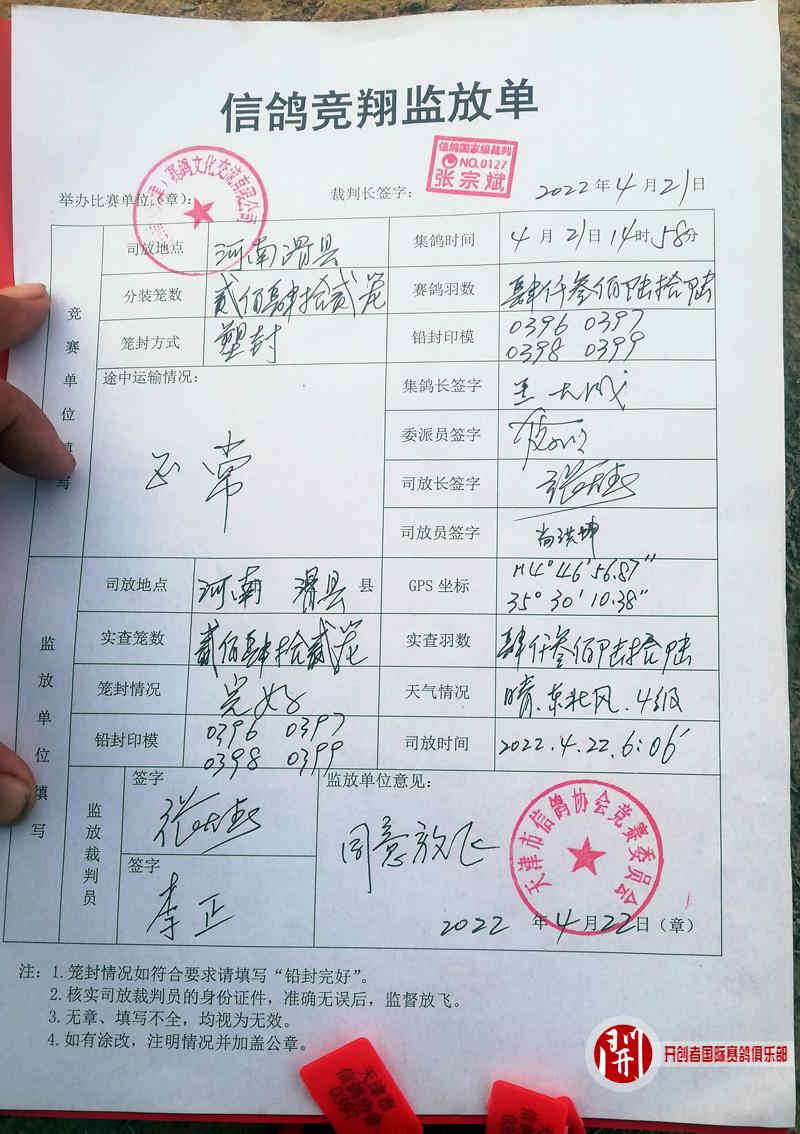 信鸽竞翔监放单
信鸽国家级裁判
NO.0127
张宗斌
赛鸽文化交流有限公司
举办比赛单位(章): 裁判长签字: 2022年4月21日
竞赛单位填写
司放地点 河南滑县 集鸽时间 4月21日14时58分
分装笼数 贰佰肆拾贰笼 赛鸽羽数 肆仟叁佰陆拾陆
笼封方式 塑封 铅封印模 0396 0397
0398 0399
途中运输情况: 正常
集鸽长签字
委派员签字
司放长签字
司放员签字 尚洪坤
监放单位填写
司放地点 河南 滑县 县 GPS 坐标 114°46′56.87″
35°30′10.38″
实查笼数 贰佰肆拾贰笼 实查羽数 肆仟叁佰陆拾陆
笼封情况 完好 天气情况 晴.东北风.4级
铅封印模 0396 0397
0398 0399
司放时间 2022.4.22.6:06′
监放裁判员
签字
签字
李正
监放单位意见:
同意放飞
天津市信鸽协会竞赛委员会
2022年4月22日(章)
注: 1.笼封情况如符合要求请填写“铅封完好”。
2.核实司放裁判员的身份证件，准确无误后，监督放飞。
3.无章、填写不全，均视为无效。
4.如有涂改，注明情况并加盖公章。
天津市
信鸽协会
天津市
信鸽协
开创者国际赛鸽俱乐部